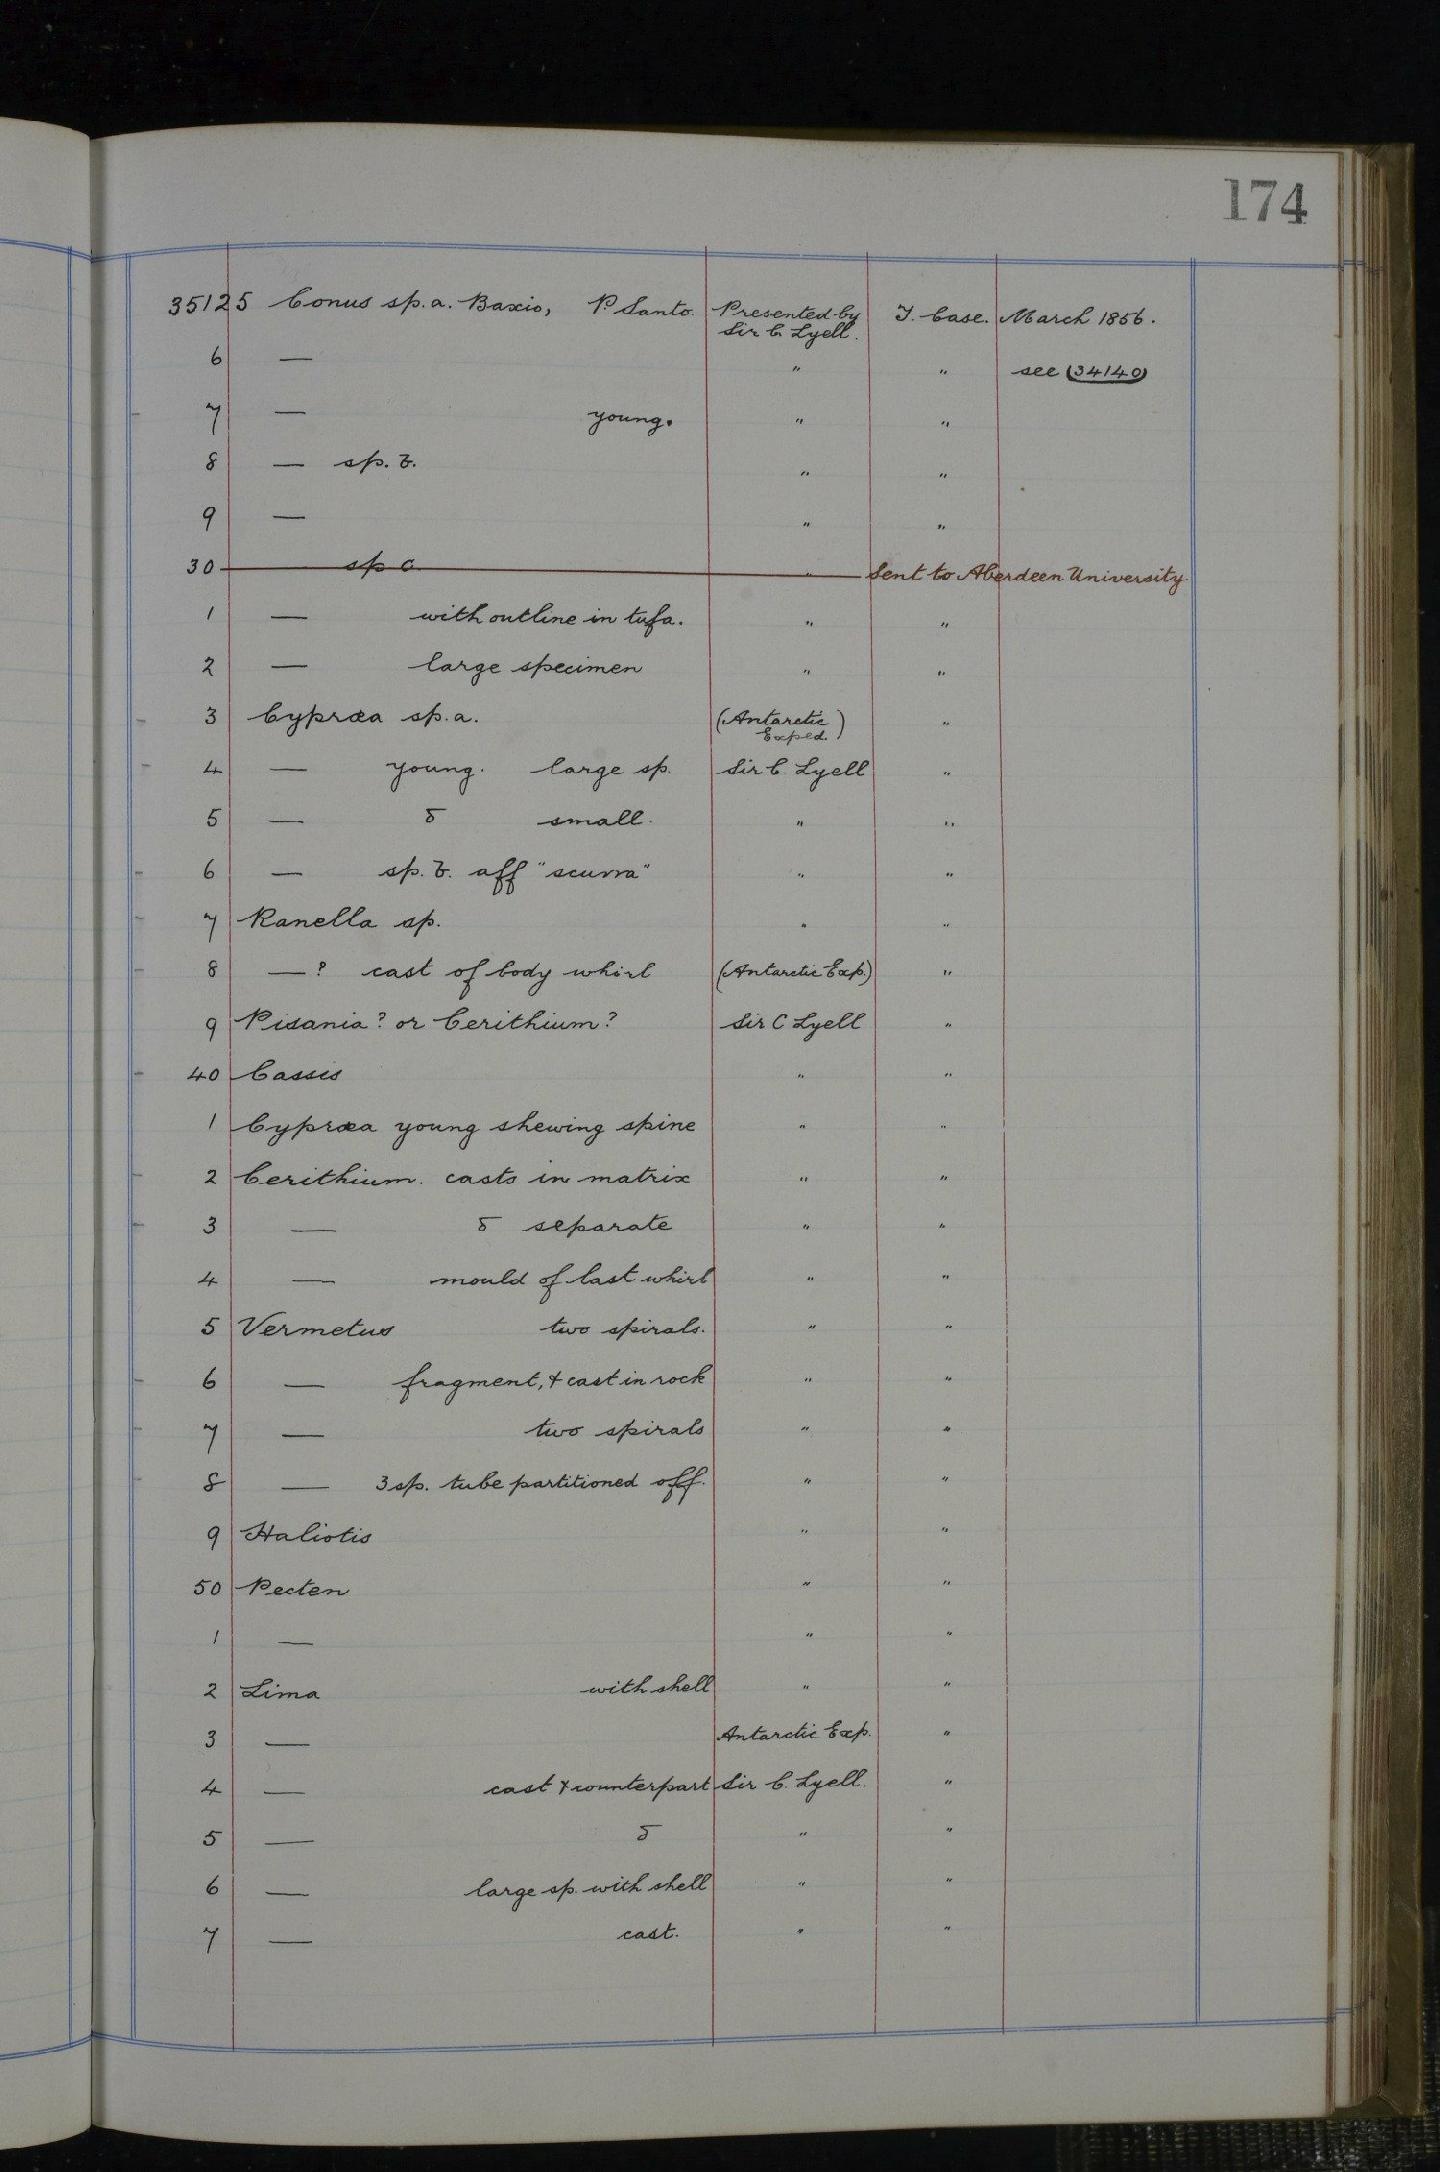 174
35125 Conus sp. a. Baxio, P. Santo. Presented by Sir C. Lyell. T. Case. March 1856.
6 — " " see (34140)
7 — young. " "
8 — sp. b. " "
9 — " "
30 sp c " Sent to Aberdeen University
1 — with outline in tufa. " "
2 — large specimen " "
3 Cypræa sp. a. (Antarctic Exped.) "
4 — young. large sp. Sir C. Lyell "
5 — do small. " "
6 — sp. b. aff "scurra" " "
7 Ranella sp. " "
8 —? cast of body whirl (Antarctic Exp.) "
9 Pisania? or Cerithium? Sir C Lyell "
40 Cassis " "
1 Cypræa young shewing spine " "
2 Cerithium. casts in matrix " "
3 — do separate " "
4 — mould of last whirl " "
5 Vermetus two spirals. " "
6 — fragment, & cast in rock " "
7 — two spirals " "
8 — 3 sp. tube partitioned off. " "
9 Haliotis " "
50 Pecten " "
1 — " "
2 Lima with shell " "
3 — Antarctic Exp. "
4 — cast & counterpart Sir C. Lyell. "
5 — do " "
6 — large sp. with shell " "
7 — cast. " "